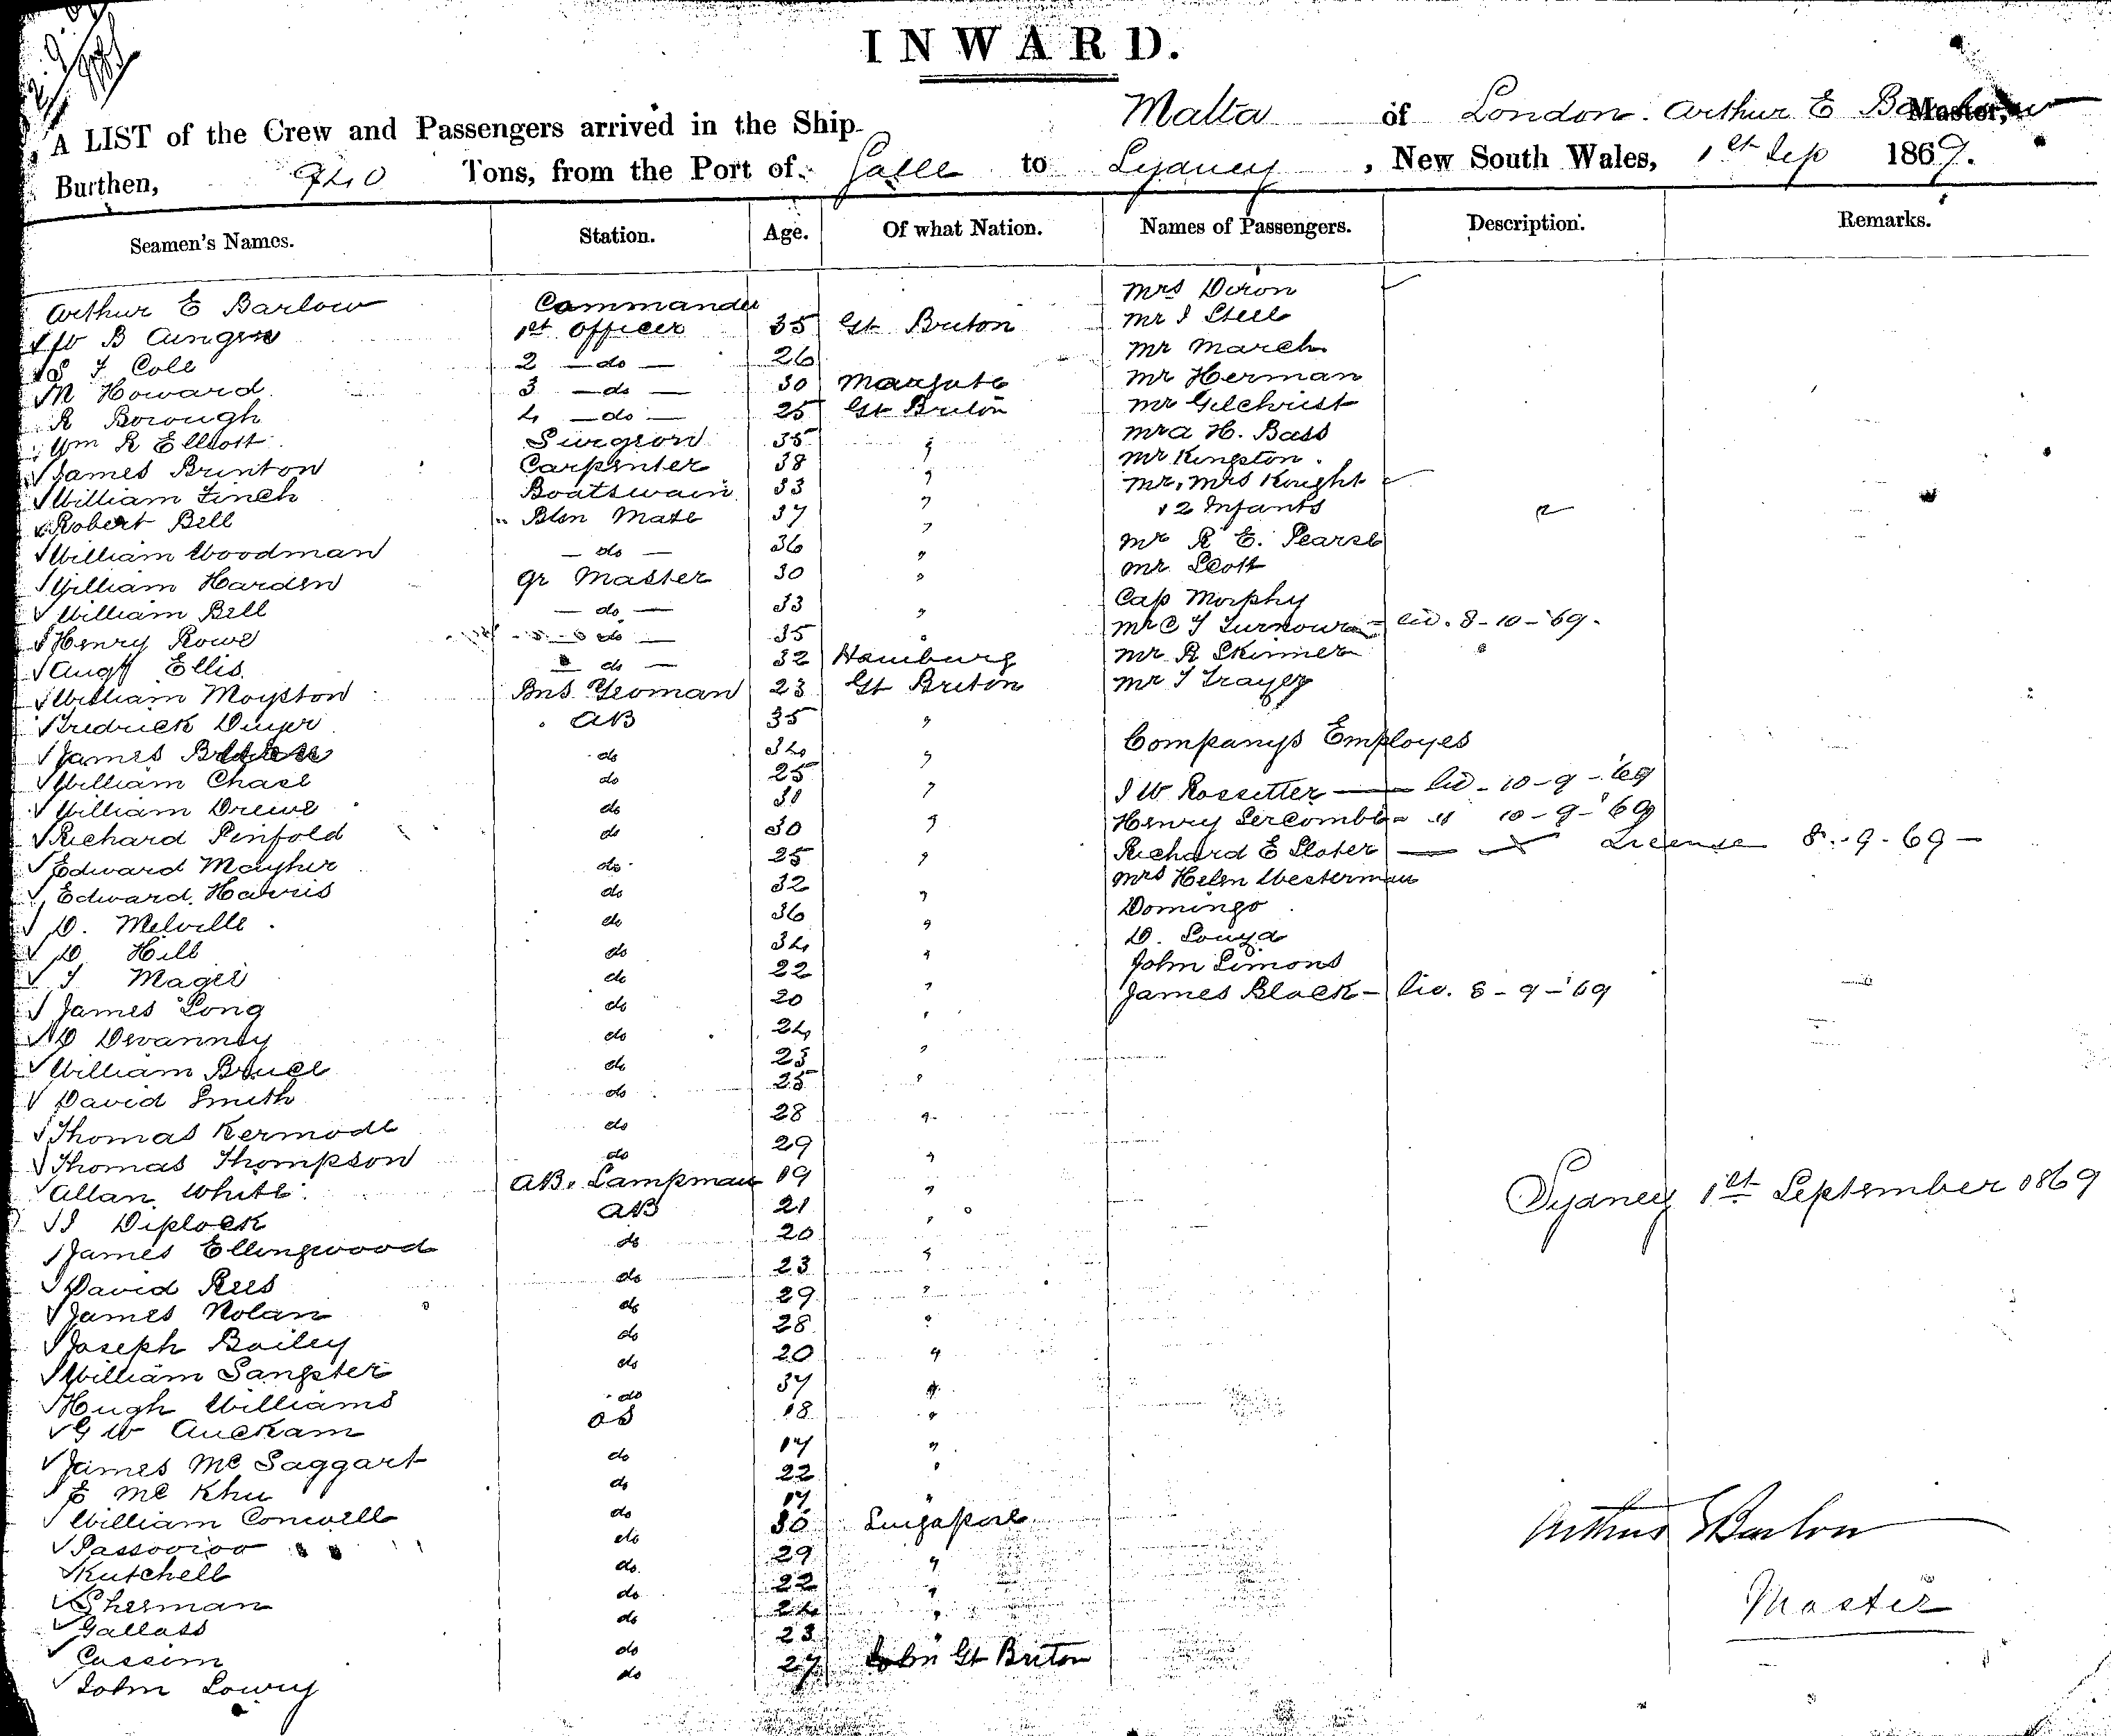 INWARD.
A LIST of the Crew and Passengers arrived in the Ship Malta of London. Arthur E Barlow Master,
Burthen, 940 Tons, from the Port of Galle to Sydney, New South Wales, 1st Sep 1869.
Seamen's Names. Station. Age. Of what Nation. Names of Passengers. Description. Remarks.
Arthur E Barlow Commander Mrs Dixon
B 1st Officer 35 Gt Briton Mr J Steel
Cole 2 do 26 Mr March
M Howard 3 do 30 Margate Mr Herman
R Borough 4 do 25 Gt Briton Mr Gilchrist
Wm R Ellcott Surgeon 35 " H. Bass
James Brinton Carpenter 38 " Mr Kingston.
William Finch Boatswain 33 " Mr, Mrs Knight
Robert Bell Btsn Mate 37 " 2 Infants
William Woodman do 36 " Mr R E. Pearse
William Harden Qr Master 30 " Mr Scott
William Bell do 33 " Cap Morphy
Henry Rowe do 35 " Mr C 8-10-'69.
Augt Ellis do 32 Hamburg Mr R Skinner
William Moyston Yeoman 23 Gt Briton Mr
Fredrick Dwyer AB 35 "
James do 34 " Companys Employes
William Chase do 25 "
William Drewe do 31 J W Rossetter 10-9-'69
Richard Penfold do 30 " Henry Sercombe " 10-9-'69
Edward Mayher do 25 " Richard E Slater License 8-9-69
Edward Harris do 32 " Mrs Helen Westerman
D. Melville do 36 " Domingo
D Hill do 34 " D. Souza
Magee do 22 " John Simons
James Long do 20 " James Black 8-9-'69
D Devanney do 24
William Bruce do 23 "
David Smith do 25 "
Thomas Kermode do 28 "
Thomas Thompson do 29 "
Allan White AB. Lampman 19 "
J Diplock AB 21 " Sydney 1st September 1869
James Ellingwood do 20 "
David Rees do 23 "
James Nolan do 29 "
Joseph Bailey do 28 "
William Sangster do 20 "
Hugh Williams do 37 "
G W Auckam OS 18 "
James Mc Taggart do 17 "
E Mc do 22 "
William Conwell do 17 "
do 30 Singapore Arthur E Barlow
Kutchell do 29 "
Sherman do 22 "
Gallass do 24 " Master
Cassim do 23 "
John Lowry do 27 Gt Briton